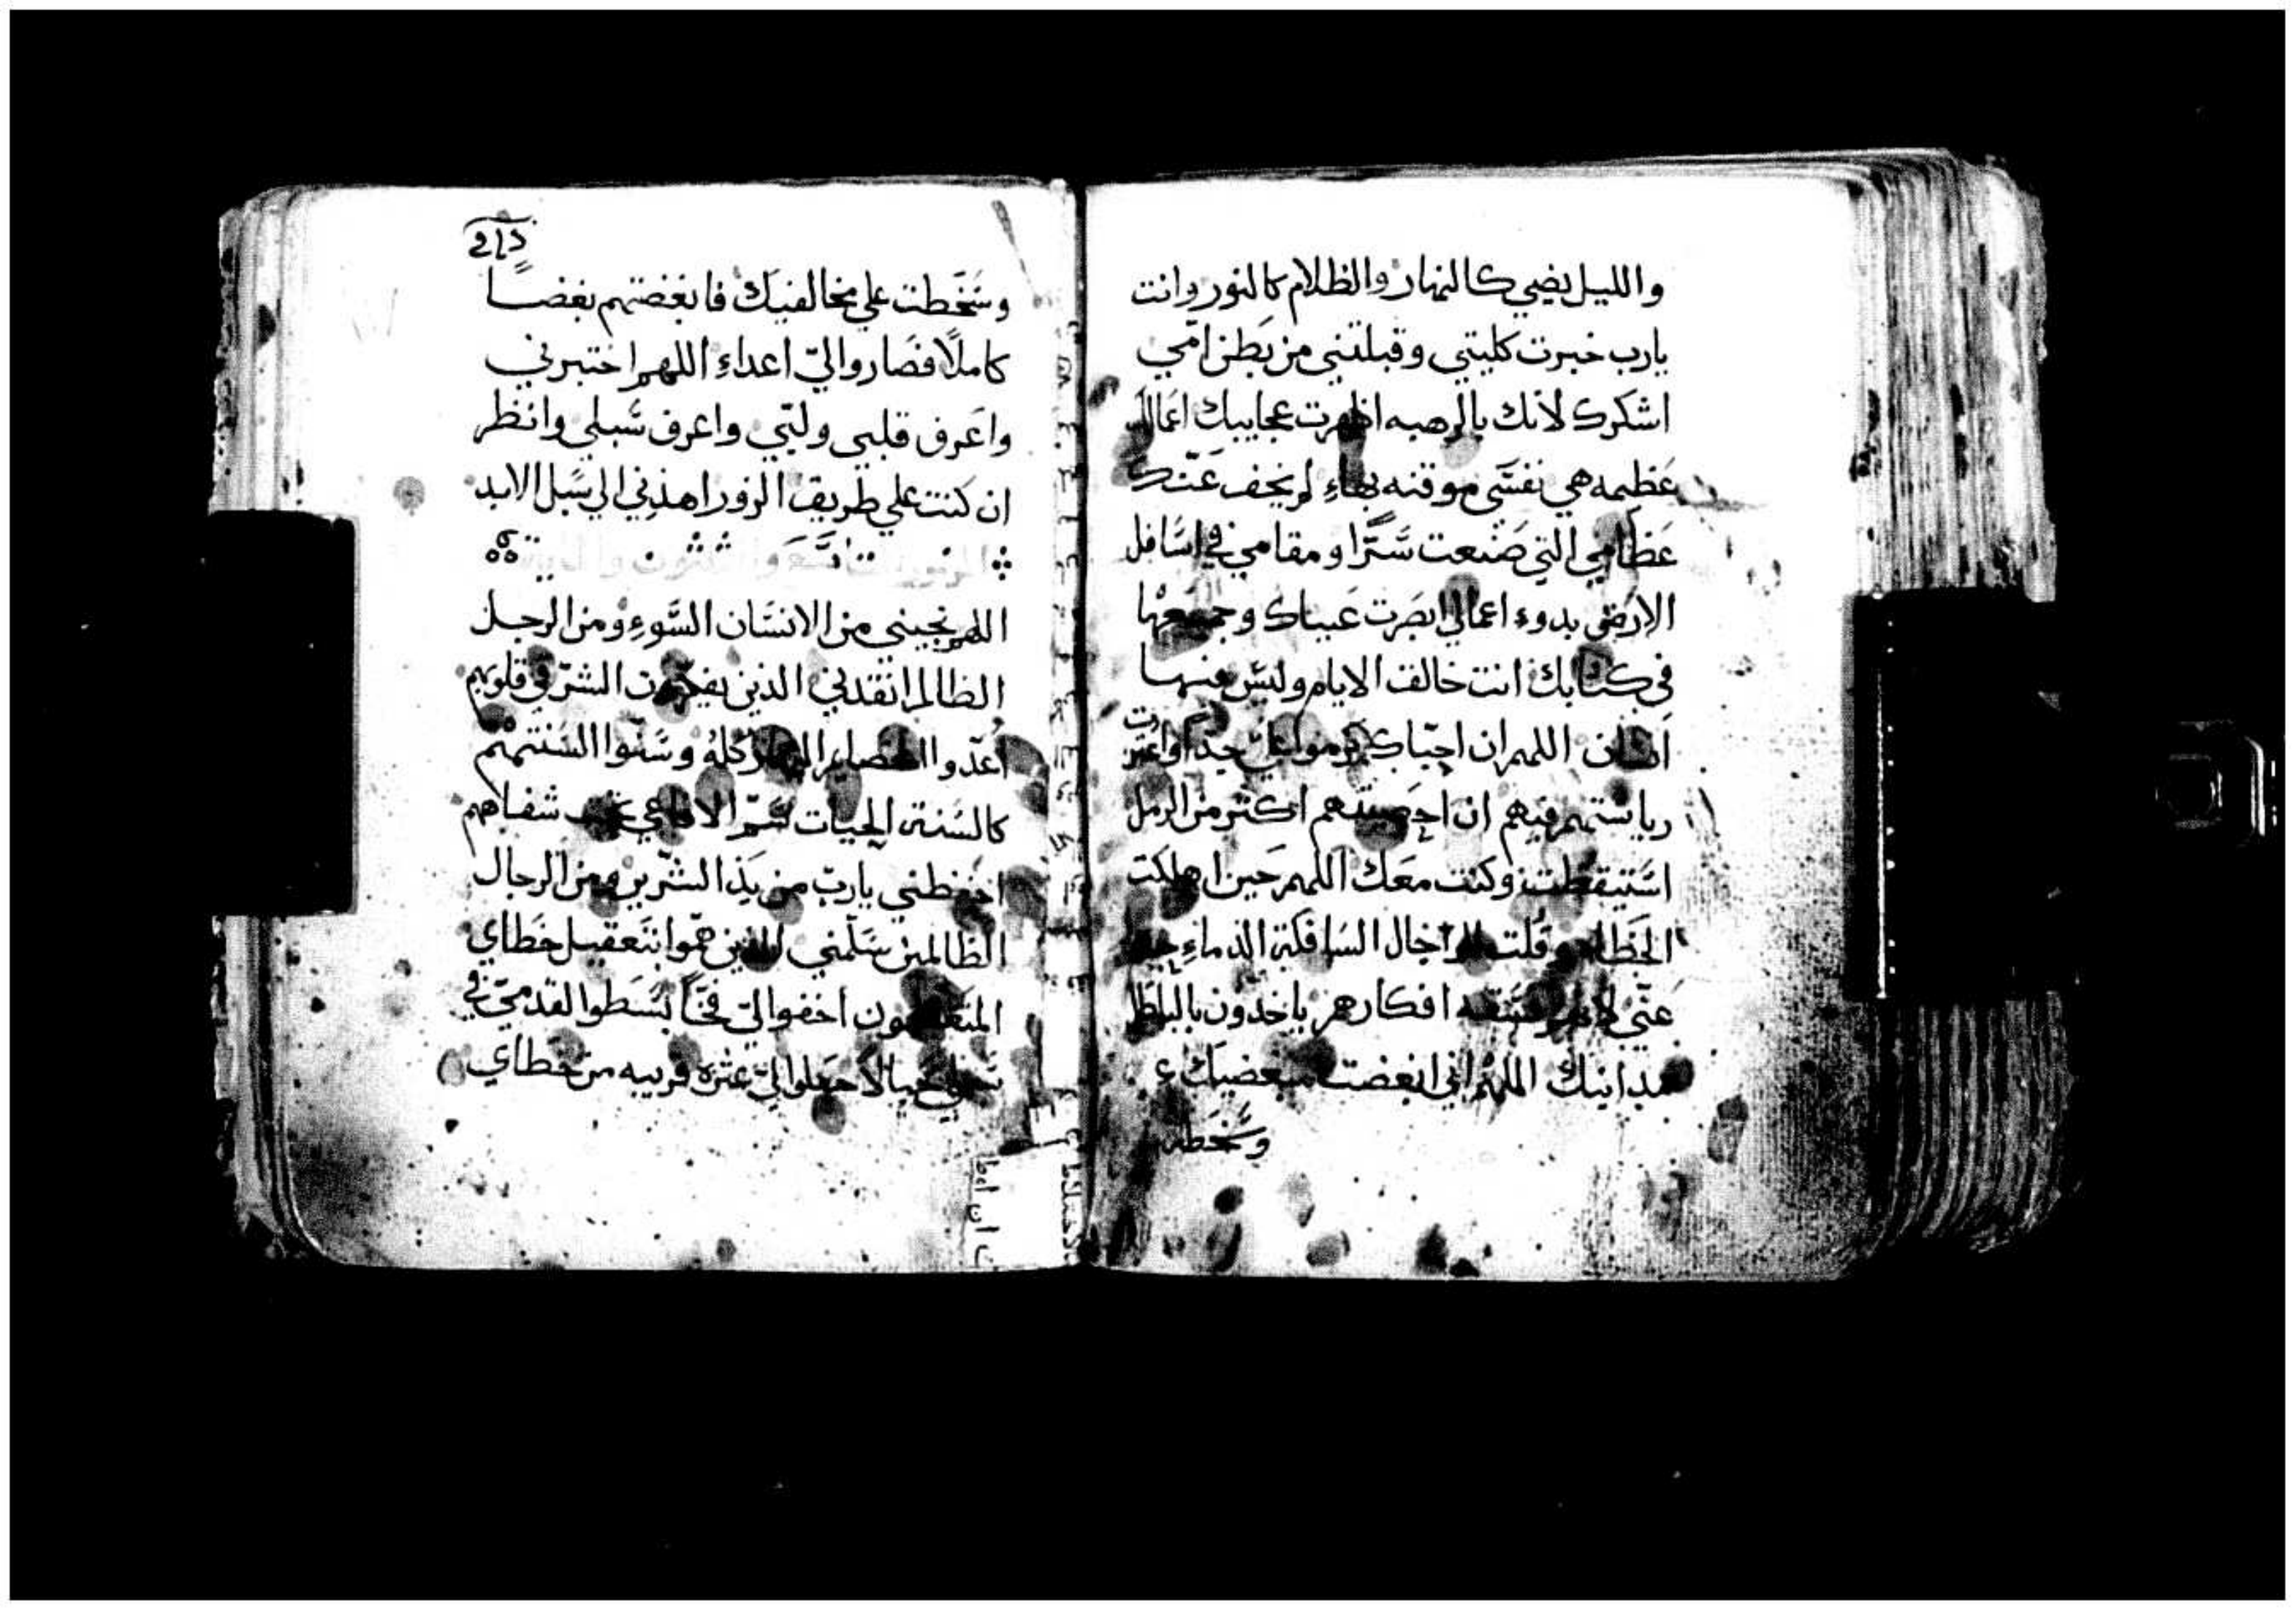 والليل يضي كالنهار والظلام كالنور وانت
يارب خبرت كليتي وقبلتني من بَطن امّي
اشكرك لانك بالرهبه اظهرت عجايبك اعمالك
عَظيمه هي نفسَي موقنه بهاءِ لم يخف عَنّك
عَظَامي التي صَنعت سَّرًّا ومقامي في اسَافل
الارض بدوء اعمالي ابصَرت عَيناك وجميعها
في كتابك انت خالق الايام وليسَ منها
انسان اللهم ان احبّاك كرموا عليّ جدًّا واعتزت
رياستهم فيهم ان احصيتهم اكتر من الرمل
استيقظت وكنت معَك اللهم حَين اهلكت
الخَطاه وقُلت للرجال السَافكة الدماءِ
عنّي لانهم افكارهم ياخدون بالباطل
مداينك اللهم اني ابغضت مبغضيك
وسَخطت
وسَخَطت علي مخالفيَك فابغَضتهم بغضًا
كاملًا فصَاروا اليّ اعداءِ اللهم اختبرني
واعَرف قلبي ولبّي واعرف سُبلي وانظر
ان كنت علي طريق الزور اهدِني الي سَبل الابد
المزمور وَالثلثون
اللهم نجيني من الانسَان السَّوءِ ومن الرجل
الظالم انقدني الدين يفكرون الشرّ في قلوبهم
اعدّوا النهار كلهُ وسَنّوا السَنتهمْ
كالسَنة الحيات سَمّ الافاعي تحت شفاههم
احفظني ياربّ من يَدَا الشرّير ومن الرجال
الظالمين سَلّمني الدين همّوا بتَعقيل خَطاي
المتعَظمون اخفوا ليّ فخًّا بَسَطوا لقدميّ في
حبالًا جعَلوا ليّ عثرة قريبه من خطاي